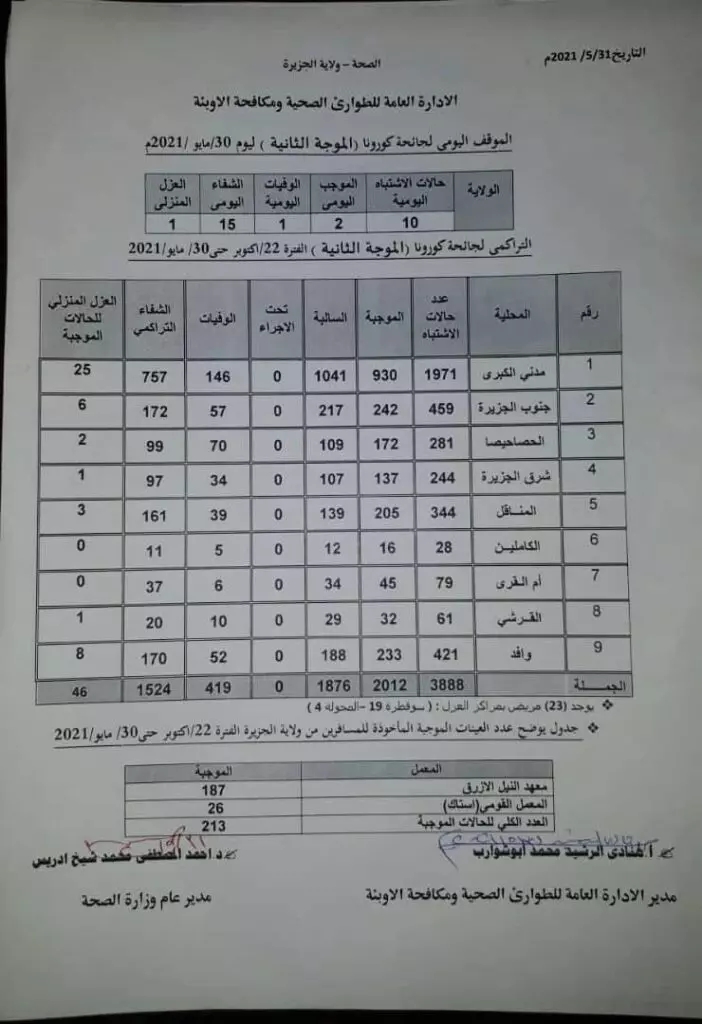 التاريخ31/5/ 2021م
الصحة - ولاية الجزيرة
الادارة العامة للطوارئ الصحية ومكافحة الاوبئة
الموقف اليومى لجائحة كورونا (الموجة الثانية ) ليوم 30/مايو /2021م
الولاية حالات الاشتباه اليومية الموجب اليومى الوفيات اليومية الشفاء اليومى العزل المنزلى
10 2 1 15 1
التراكمى لجائحة كورونا (الموجة الثانية ) الفترة 22/اكتوبر حتى30/ مايو/2021
رقم المحلية عدد حالات الاشتباه الموجبة السالبة تحت الاجراء الوفيات الشفاء التراكمي العزل المنزلي للحالات الموجبة
1 مدني الكبرى 1971 930 1041 0 146 757 25
2 جنوب الجزيرة 459 242 217 0 57 172 6
3 الحصاحيصا 281 172 109 0 70 99 2
4 شرق الجزيرة 244 137 107 0 34 97 1
5 المناقل 344 205 139 0 39 161 3
6 الكاملين 28 16 12 0 5 11 0
7 أم القرى 79 45 34 0 6 37 0
8 القرشي 61 32 29 0 10 20 1
9 وافد 421 233 188 0 52 170 8
الجملة 3888 2012 1876 0 419 1524 46
❖ يوجد (23) مريض بمراكز العزل : ( سوقطرة 19 -المحولة 4 )
❖ جدول يوضح عدد العينات الموجبة المأخوذة للمسافرين من ولاية الجزيرة الفترة 22/اكتوبر حتى30/ مايو/2021
المعمل الموجبة
معهد النيل الازرق 187
المعمل القومى(استاك) 26
العدد الكلي للحالات الموجبة 213
أ.هنادى الرشيد محمد ابوشوارب
د.احمد المصطفى محمد شيخ ادريس
مدير الادارة العامة للطوارئ الصحية ومكافحة الاوبئة
مدير عام وزارة الصحة